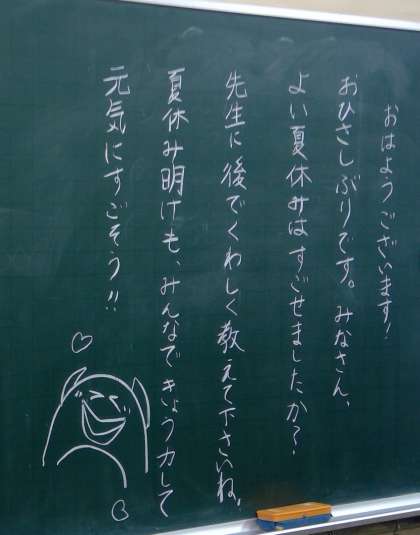 おはようございます!
おひさしぶりです。みなさん、
よい夏休みはすごせましたか?
先生に後でくわしく教えて下さいね。
夏休み明けも、みんなできょう力して
元気にすごそう!!